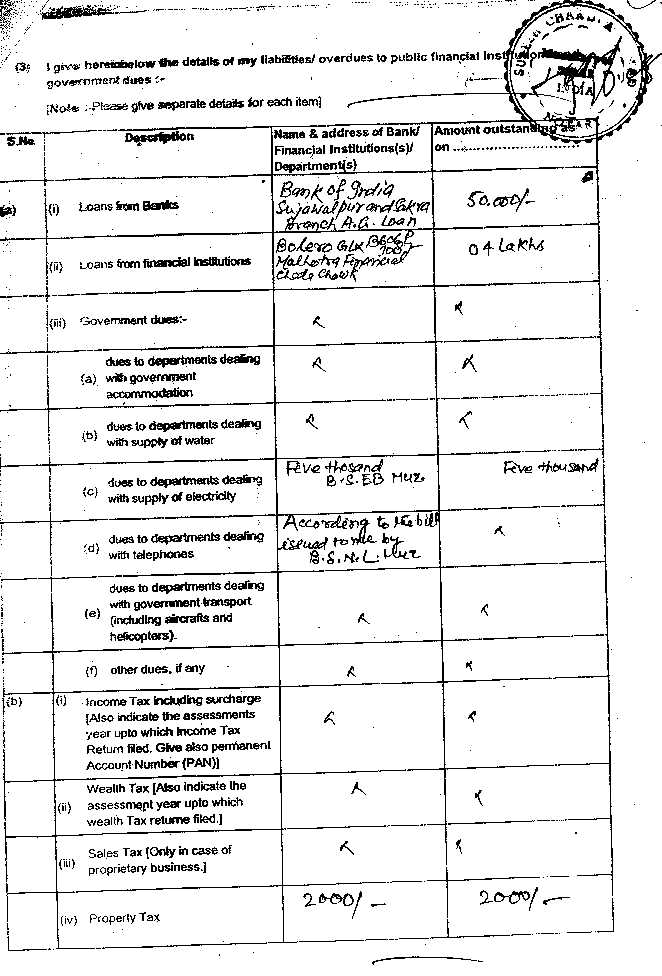 (3) I give hereinbelow the details of my liabilities/ overdues to public financial
government dues :-
[Note :-Please give separate details for each item]
S.No. Description Name & address of Bank/ Financial Institutions(s)/ Department(s) Amount outstanding as on ..............................
(a) (i) Loans from Banks
Bank of India
Sujawalpur and Sakra
Branch A.G. Loan
50.000/-
(ii) Loans from financial Institutions
Bolero GLX
Malhotra Financial
Chowk
04 Lakhs
(iii) Government dues:-
(a) dues to departments dealing
with government
accommodation
(b) dues to departments dealing
with supply of water
(c) dues to departments dealing
with supply of electricity
Five thosand
B.S.EB Muz.
Five thousand
(d) dues to departments dealing
with telephones
According to the bill
issued to me by
B.S.N.L. Muz
(e) dues to departments dealing
with government transport
(including aircrafts and
helicopters).
(f) other dues, if any
(b) (i) Income Tax including surcharge
[Also indicate the assessments
year upto which Income Tax
Return filed. Give also permanent
Account Number (PAN)]
(ii) Wealth Tax [Also indicate the
assessment year upto which
wealth Tax returne filed.]
(iii) Sales Tax [Only in case of
proprietary business.]
(iv) Property Tax 2000/- 2000/-
INDIA